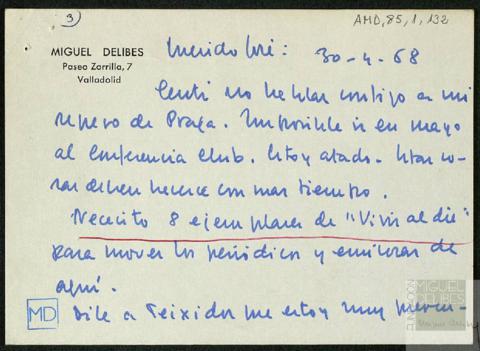 3
AMD, 85, 1, 132
MIGUEL DELIBES
Paseo Zorrilla, 7
Valladolid
Querido José: 30-4-68
Sentí no hablar contigo a mi
regreso de Praga. Imposible ir en mayo
al Conferencia Club. Estoy atado. Estas co-
sas deben hacerse con más tiempo.
Necesito 8 ejemplares de "Vivir al día"
para mover los periódicos y emisoras de
aquí.
Dile a Teixidor que estoy muy
MD
FUNDACIÓN
MIGUEL
DELIBES